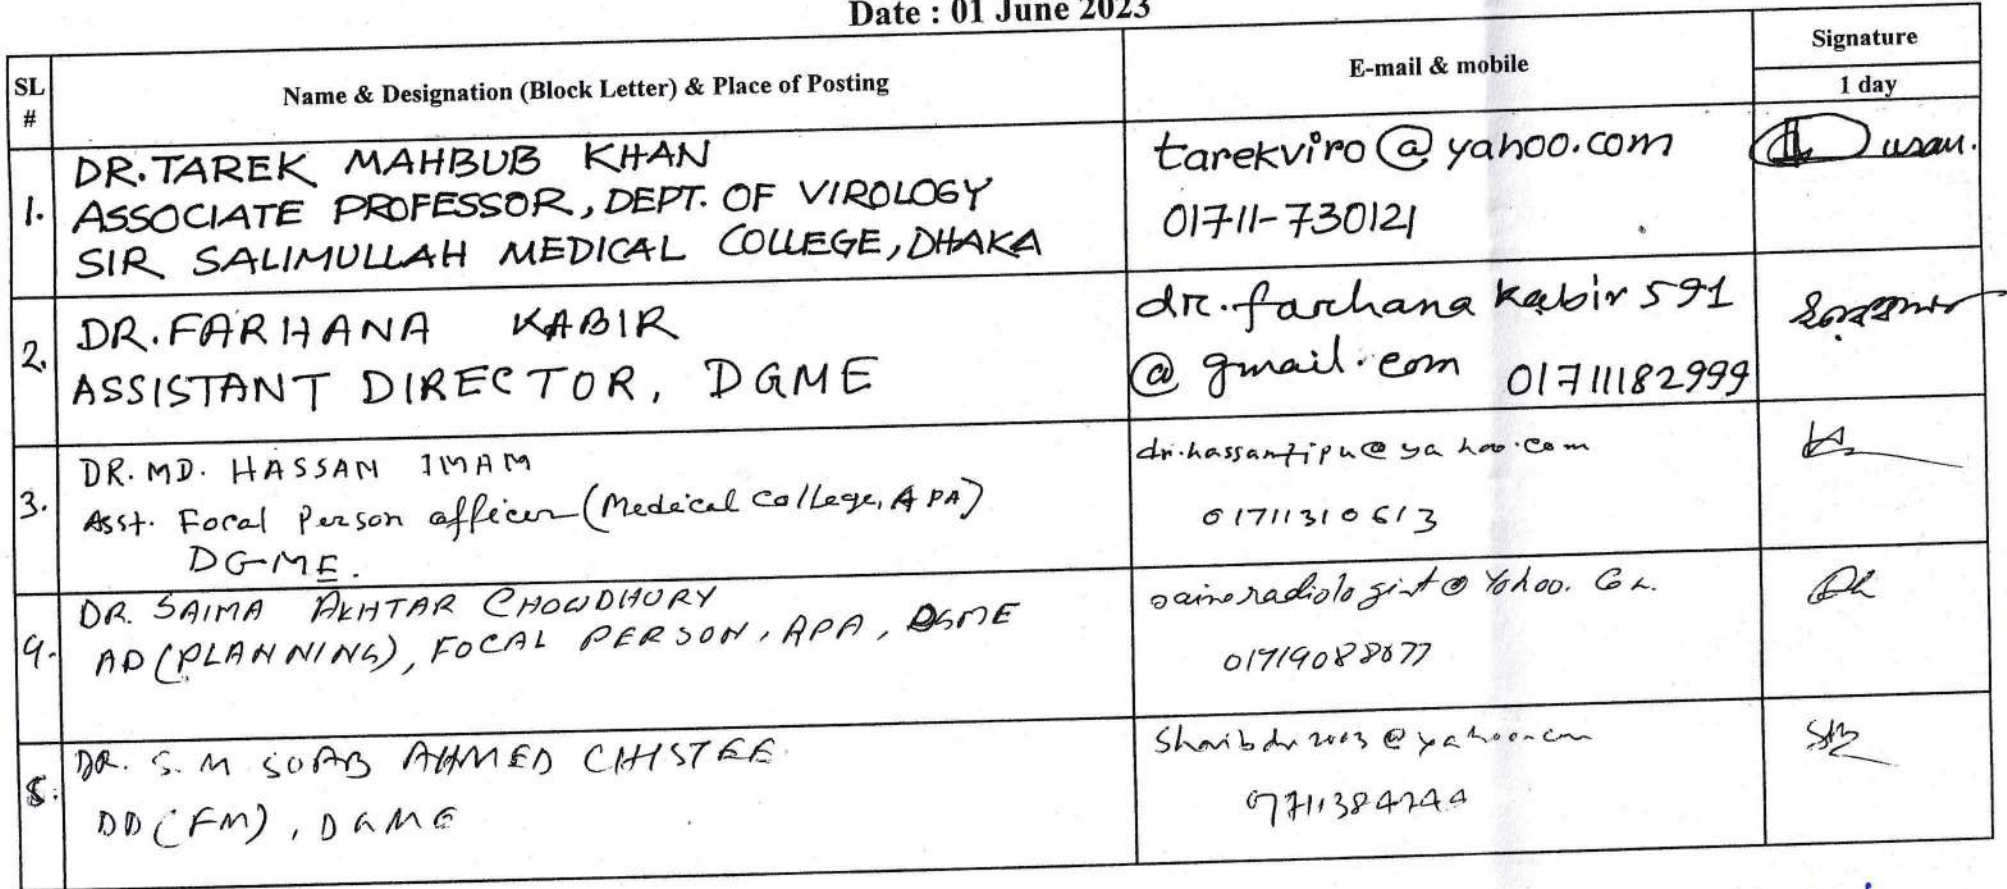 Date : 01 June 2023
SL #
Name & Designation (Block Letter) & Place of Posting
E-mail & mobile
Signature
1 day
1.
DR. TAREK MAHBUB KHAN
ASSOCIATE PROFESSOR, DEPT. OF VIROLOGY
SIR SALIMULLAH MEDICAL COLLEGE, DHAKA
tarekviro@yahoo.com
01711-730121
2.
DR. FARHANA KABIR
ASSISTANT DIRECTOR, DGME
dr.farhana kabir 591
@ gmail.com 01711182999
3.
DR. MD. HASSAN IMAM
Asst. Focal Person officer (Medical College, APA)
DGME.
dr.hassantipu@yahoo.com
01711310613
4.
DR. SAIMA AKHTAR CHOWDHURY
AD (PLANNING), FOCAL PERSON, APA, DGME
01719088077
5.
DR. S. M SOAB AHMED CHISTEE
DD (FM), DGME